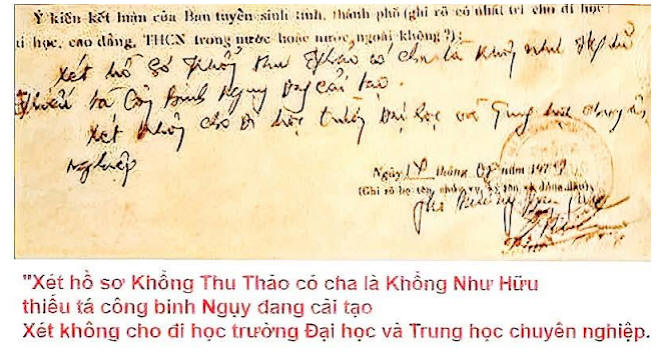 Ý kiến kết luận của Ban tuyển sinh tỉnh, thành phố (ghi rõ có nhất trí cho đi học
đại học, cao đẳng, THCN trong nước hoặc nước ngoài không?):
Xét hồ sơ Khổng Thu Thảo có cha là Khổng Như Hữu
thiếu tá Công Binh Ngụy đang cải tạo.
Xét không cho đi học trường Đại học và Trung học chuyên
Nghiệp
Ngày 14 tháng năm 1979
(Ghi rõ họ tên, chức vụ, ký tên và đóng dấu)
"Xét hồ sơ Khổng Thu Thảo có cha là Khổng Như Hữu
thiếu tá công binh Ngụy đang cải tạo
Xét không cho đi học trường Đại học và Trung học chuyên nghiệp.